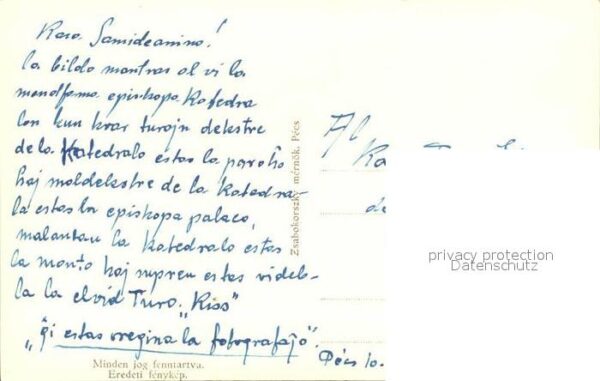 Kara Samideanino!
la bildo montras al vi la
mondfama episkopa Katedra
lon kun kvar turojn dekstre
de la Katedralo estas la paroĥo
kaj maldekstre de la Katedra-
la estas la episkopa palaco,
malantau la Katedralo estas
la monto kaj supren estas videb-
la la elvid Turo „Kiss"
„ĝi estas oregina la fotografaĵo".
Al
Ka
de
Pécs 10.
Zsabokorszky mérnök, Pécs
privacy protection
Datenschutz
Minden jog fenntartva.
Eredeti fénykép.